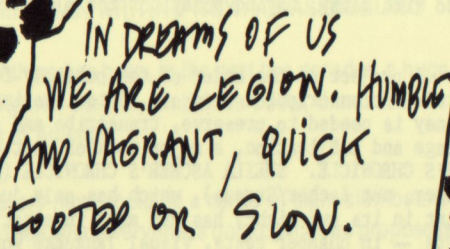 IN DREAMS OF US
WE ARE LEGION. HUMBLE
AND VAGRANT, QUICK
FOOTED OR SLOW.